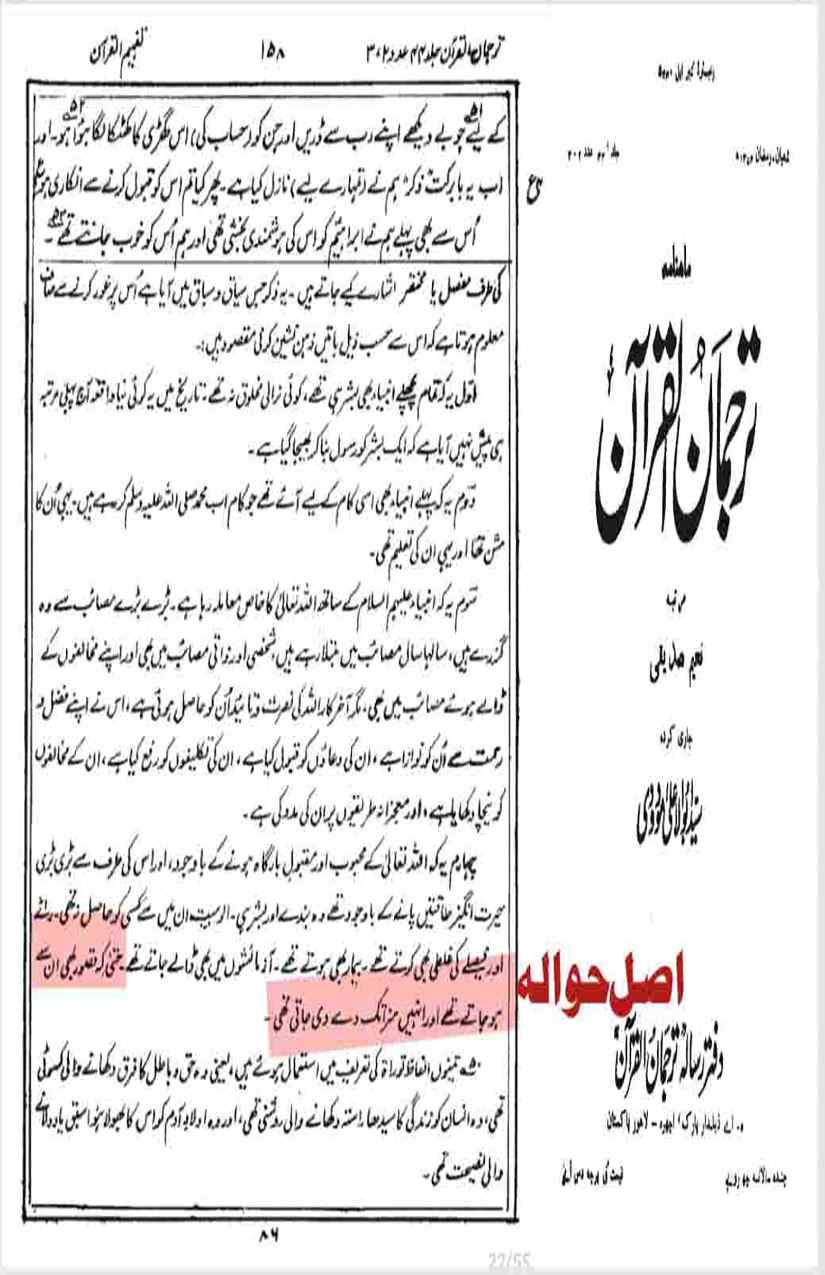 ترجمان القرآن جلد ۴۴ عدد ۲،۳
۱۵۸
تفہیم القرآن
کے لیے جو بے دیکھے اپنے رب سے ڈریں اور جن کو (حساب کی) اس گھڑی کا کھٹکا لگا ہوا ہو۔ اور
اب یہ بابرکت "ذکر" ہم نے (تمہارے لیے) نازل کیا ہے۔ پھر کیا تم اس کو قبول کرنے سے انکاری ہو؟
ع
اُس سے بھی پہلے ہم نے ابراہیمؑ کو اس کی ہوشمندی بخشی تھی اور ہم اُس کو خوب جانتے تھے۔
کی طرف مفصل یا مختصر اشارے کیے جاتے ہیں۔ یہ ذکر جس سیاق و سباق میں آیا ہے اُس پر غور کرنے سے صاف
معلوم ہوتا ہے کہ اس سے حسب ذیل باتیں ذہن نشین کرنی مقصود ہیں:۔
اول یہ کہ تمام پچھلے انبیاء بھی بشر ہی تھے، کوئی نرالی مخلوق نہ تھے۔ تاریخ میں یہ کوئی نیا واقعہ آج پہلی مرتبہ
ہی پیش نہیں آیا ہے کہ ایک بشر کو رسول بنا کر بھیجا گیا ہے۔
دوم یہ کہ پہلے انبیاء بھی اسی کام کے لیے آئے تھے جو کام اب محمد صلی اللہ علیہ وسلم کر رہے ہیں۔ یہی اُن کا
مشن تھا اور یہی ان کی تعلیم تھی۔
سوم یہ کہ انبیاء علیہم السلام کے ساتھ اللہ تعالیٰ کا خاص معاملہ رہا ہے۔ بڑے بڑے مصائب سے وہ
گزرے ہیں، سالہا سال مصائب میں مبتلا رہے ہیں، شخصی اور ذاتی مصائب میں بھی اور اپنے مخالفوں کے
ڈالے ہوئے مصائب میں بھی، مگر آخر کار اللہ کی نصرت و تائید اُن کو حاصل ہوئی ہے، اس نے اپنے فضل و
رحمت سے اُن کو نوازا ہے، ان کی دعاؤں کو قبول کیا ہے، ان کی تکلیفوں کو رفع کیا ہے، ان کے مخالفوں
کو نیچا دکھایا ہے، اور معجزانہ طریقوں پر ان کی مدد کی ہے۔
چہارم یہ کہ اللہ تعالیٰ کے محبوب اور مقبول بارگاہ ہونے کے باوجود، اور اس کی طرف سے بڑی بڑی
حیرت انگیز طاقتیں پانے کے باوجود تھے وہ بندے اور بشر ہی۔ الوہیت ان میں سے کسی کو حاصل نہ تھی۔ رائے
اور فیصلے کی غلطی بھی کرتے تھے۔ بیمار بھی ہوتے تھے۔ آزمائشوں میں بھی ڈالے جاتے تھے۔ حتیٰ کہ قصور بھی ان سے
ہو جاتے تھے اور انہیں سزا تک دے دی جاتی تھی۔
تینوں الفاظ توراۃ کی تعریف میں استعمال ہوئے ہیں، یعنی وہ حق و باطل کا فرق دکھانے والی کسوٹی
تھی، وہ انسان کو زندگی کا سیدھا راستہ دکھانے والی روشنی تھی، اور وہ اولادِ آدم کو اس کا بھولا ہوا سبق یاد دلانے
والی نصیحت تھی۔
۸۶
رجسٹرڈ نمبر ایل
شعبان، رمضان
جلد ۴۴ عدد ۲،۳
ماہنامہ
ترجمان القرآن
مرتبہ
نعیم صدیقی
جاری کردہ
سید ابوالاعلیٰ مودودی
اصل حوالہ
دفتر رسالہ ترجمان القرآن
۵۔ اے ذیلدار پارک، اچھرہ - لاہور پاکستان
چندہ سالانہ چھ روپے
قیمت فی پرچہ دس آنے
22/55